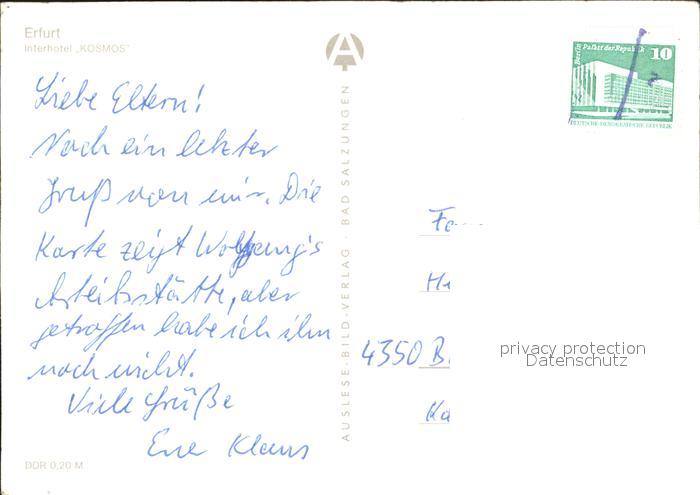 Erfurt
Interhotel „KOSMOS“
Liebe Eltern!
Noch ein letzter
Gruß von mir. Die
Karte zeigt Wolfgang's
Arbeitsstätte, aber
getroffen habe ich ihn
noch nicht.
Viele Grüße
Euer Klaus
DDR 0,20 M
A
AUSLESE-BILD-VERLAG · BAD SALZUNGEN
Berlin Palast der Republik
10
DEUTSCHE DEMOKRATISCHE REPUBLIK
Fa
4350 B.
Ka
privacy protection
Datenschutz